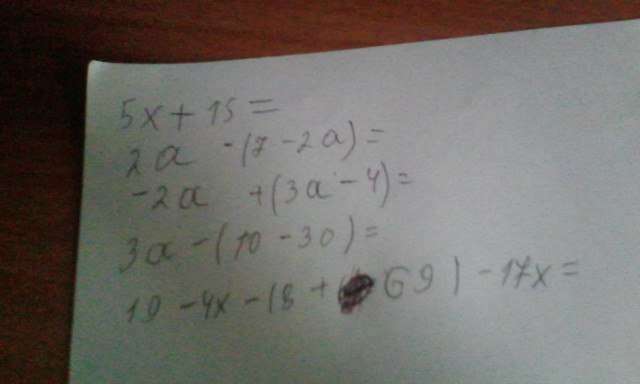 5x + 15 =
2a - (7 - 2a) =
-2a + (3a - 4) =
3a - (10 - 30) =
10 - 4x - 18 + 69) - 17x =